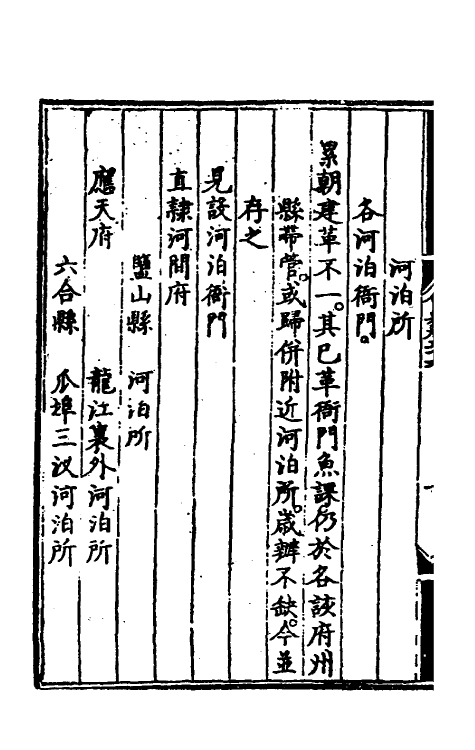 河泊所
各河泊衙門。
累朝建革不一。其已革衙門魚課仍於各該府州
縣帶管。或歸併附近河泊所。歲辦不缺。今並
存之
見設河泊衙門
直隸河間府
鹽山縣 河泊所
應天府 龍江裏外河泊所
六合縣 瓜埠三汊河泊所